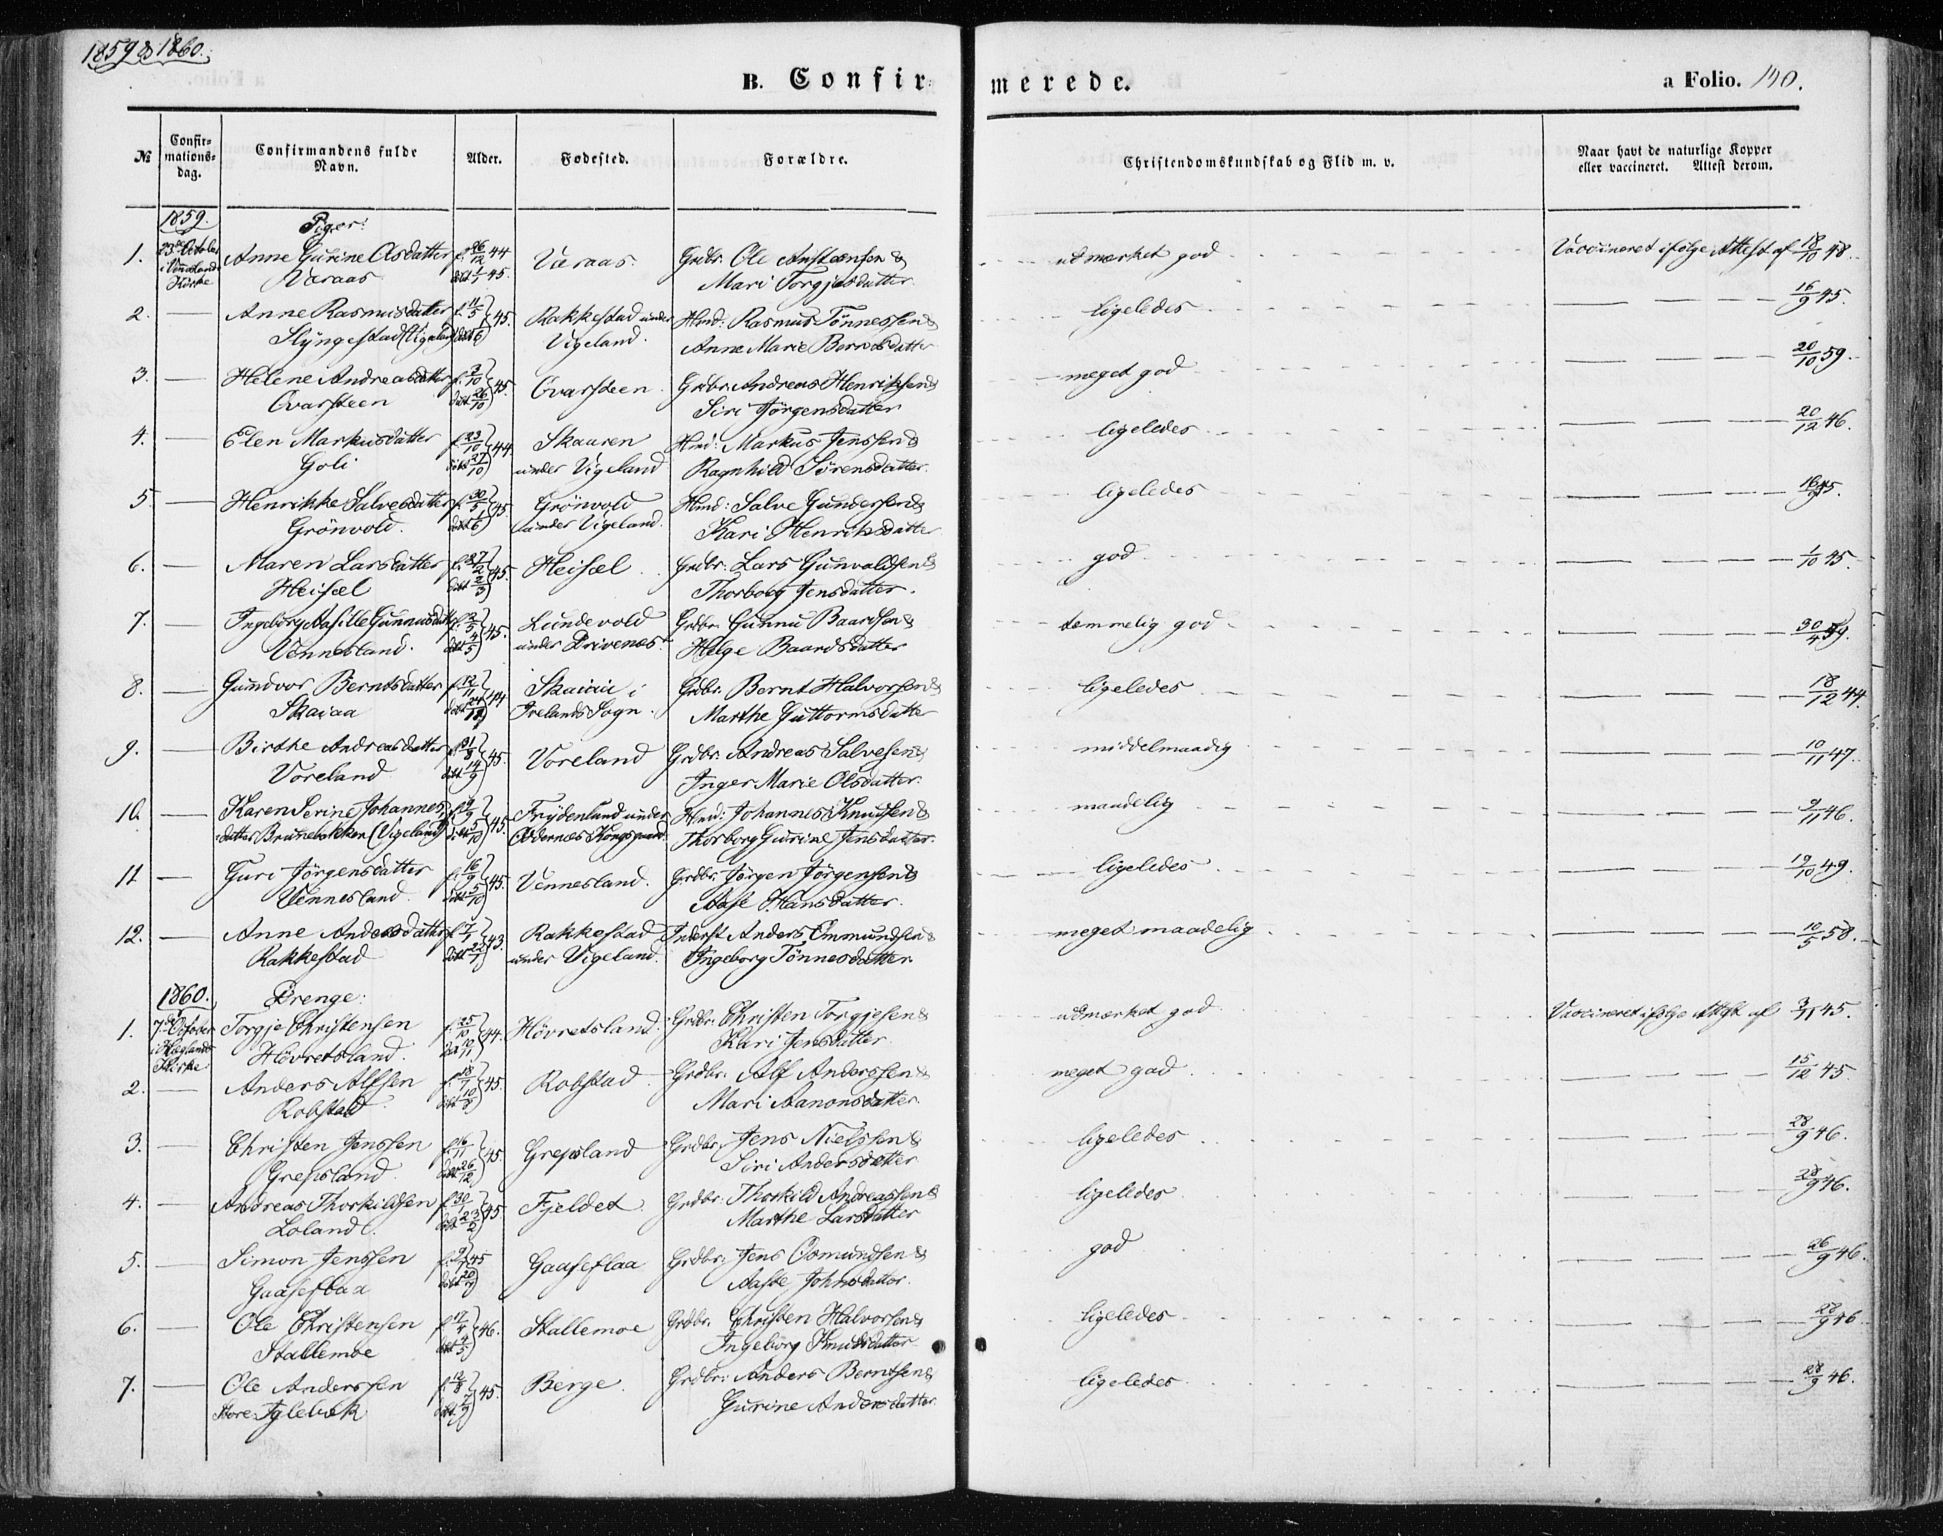 1859 & 1860.
B. Confirmerede.
a Folio. 140.
No
Confirmations-dag.
Confirmandens fulde Navn.
Alder.
Fødested.
Forældre.
Christendomskundskab og Flid m. v.
Naar havt de naturlige Kopper eller vaccineret. Attest derom.
1859. Piger:
1. 23de October i Vennesland Kirke Anne Gurine Olsdatter Væraas f. 26/12 44 døbt 1/1 45. Væraas. Grdbr. Ole Anstensen & Mari Torgjusdatter udmærket god Vaccineret ifølge Attest af 18/10 48.
2. — Anne Rasmusdatter Slyngestad (Vigeland) f. 11/5 døbt 6 45. Rakkestad under Vigeland. Hmd: Rasmus Tønnessen & Anne Marie Berntsdatter ligeledes — 16/9 45.
3. — Helene Andreasdatter Ovarsteen f. 2/10 døbt 26/10 45. Ovarsteen. Grdbr. Andreas Henriksen & Siri Jørgensdatter meget god — 20/10 59.
4. — Elen Markusdatter Goli f. 23/10 døbt 27/10 44. Skaaren under Vigeland Hmd: Markus Jenssen & Ragnhild Sørensdatter. ligeledes — 20/12 46.
5. — Henrikke Salvesdatter Grönvold. f. 30/5 døbt 1/6 45. Grönvold under Vigeland. Hmd: Salve Gundersen & Kari Henriksdatter ligeledes — 16/9 45.
6. — Maren Larsdatter Heisel f. 27/2 døbt 2/3 45. Heisel Grdbr. Lars Gunvaldsen & Thorborg Jensdatter. god — 1/10 45.
7. — Ingeborg Aasille Gunnusdatter Vennesland. f. 2/5 døbt 4/5 45. Lundevold under Drivenes. Grdbr. Gunnu Baardsen & Helge Baardsdatter temmelig god — 30/4 59.
8. — Gundvor Berntsdatter Skaiaa f. 12/11 døbt 24/11 44 Skaiaa i Ivelands Sogn. Grdbr. Bernt Halvorsen & Marthe Guttormsdatter ligeledes — 18/12 44.
9. — Birthe Andreasdatter Voreland f. 31/8 døbt 14/9 45. Voreland Grdbr. Andreas Salvesen & Inger Marie Olsdatter. middelmaadig — 10/11 47.
10. — Karen Serine Johannesdatter Brunebakken (Vigeland) f. 9/9 døbt 5/10 45. Frydenland under Oddernes Kongsgaard. Hmd: Johannes Knutsen & Thorborg Gurine Jensdatter. maadelig — 9/11 46.
11 — Guri Jørgensdatter Vennesland. f. 16/9 døbt 5/10 45. Vennesland. Grdbr. Jørgen Jørgensen & Aase Hansdatter. ligeledes — 19/10 49.
12. — Anne Andersdatter Rakkestad f. 7/1 døbt 22/1 43. Rakkestad under Vigeland. Inderst Anders Ommundsen & Ingeborg Tønnesdatter meget maadelig — 10/5 58.
1860. Drenge:
1. 7de October i Hægelands Kirke Torgje Christensen Hövretsland. f. 25/10 døbt 10/11 44. Hövretsland. Grdbr. Christen Torgjesen & Kari Jensdatter udmærket god Vaccineret ifølge Attest af 3/11 45.
2. — Anders Alfsen Robstad f. 18/7 døbt 10/8 45. Robstad. Grdbr. Alf Anderssen & Mari Aanonsdatter meget god — 15/12 45.
3. — Christen Jenssen Grepsland. f. 16/11 døbt 26/12 45. Grepsland Grdbr. Jens Nielssen & Siri Andersdatter ligeledes — 28/9 46.
4. — Andreas Thorkildsen Loland. f. 30/1 døbt 23/2 45 Fjeldet Grdbr: Thorkild Andreassen & Marthe Larsdatter ligeledes — 28/9 46.
5. — Simon Jenssen Gaaseflaa f. 9/7 45 døbt 20/7 Gaaseflaa Grdbr: Jens Osmundsen & Aaste Johnsdatter. god — 26/9 46.
6. — Ole Christensen Stallemoe f. 17/4 døbt 4/5 46. Stallemoe Grdbr. Christen Halvorsen & Ingeborg Knudsdatter ligeledes — 28/9 46
7. — Ole Anderssen Store-Iglebæk f. 12/8 døbt 1/9 45. Berge. Grdbr: Anders Berntsen & Gurine Andersdatter ligeledes — 28/9 46.